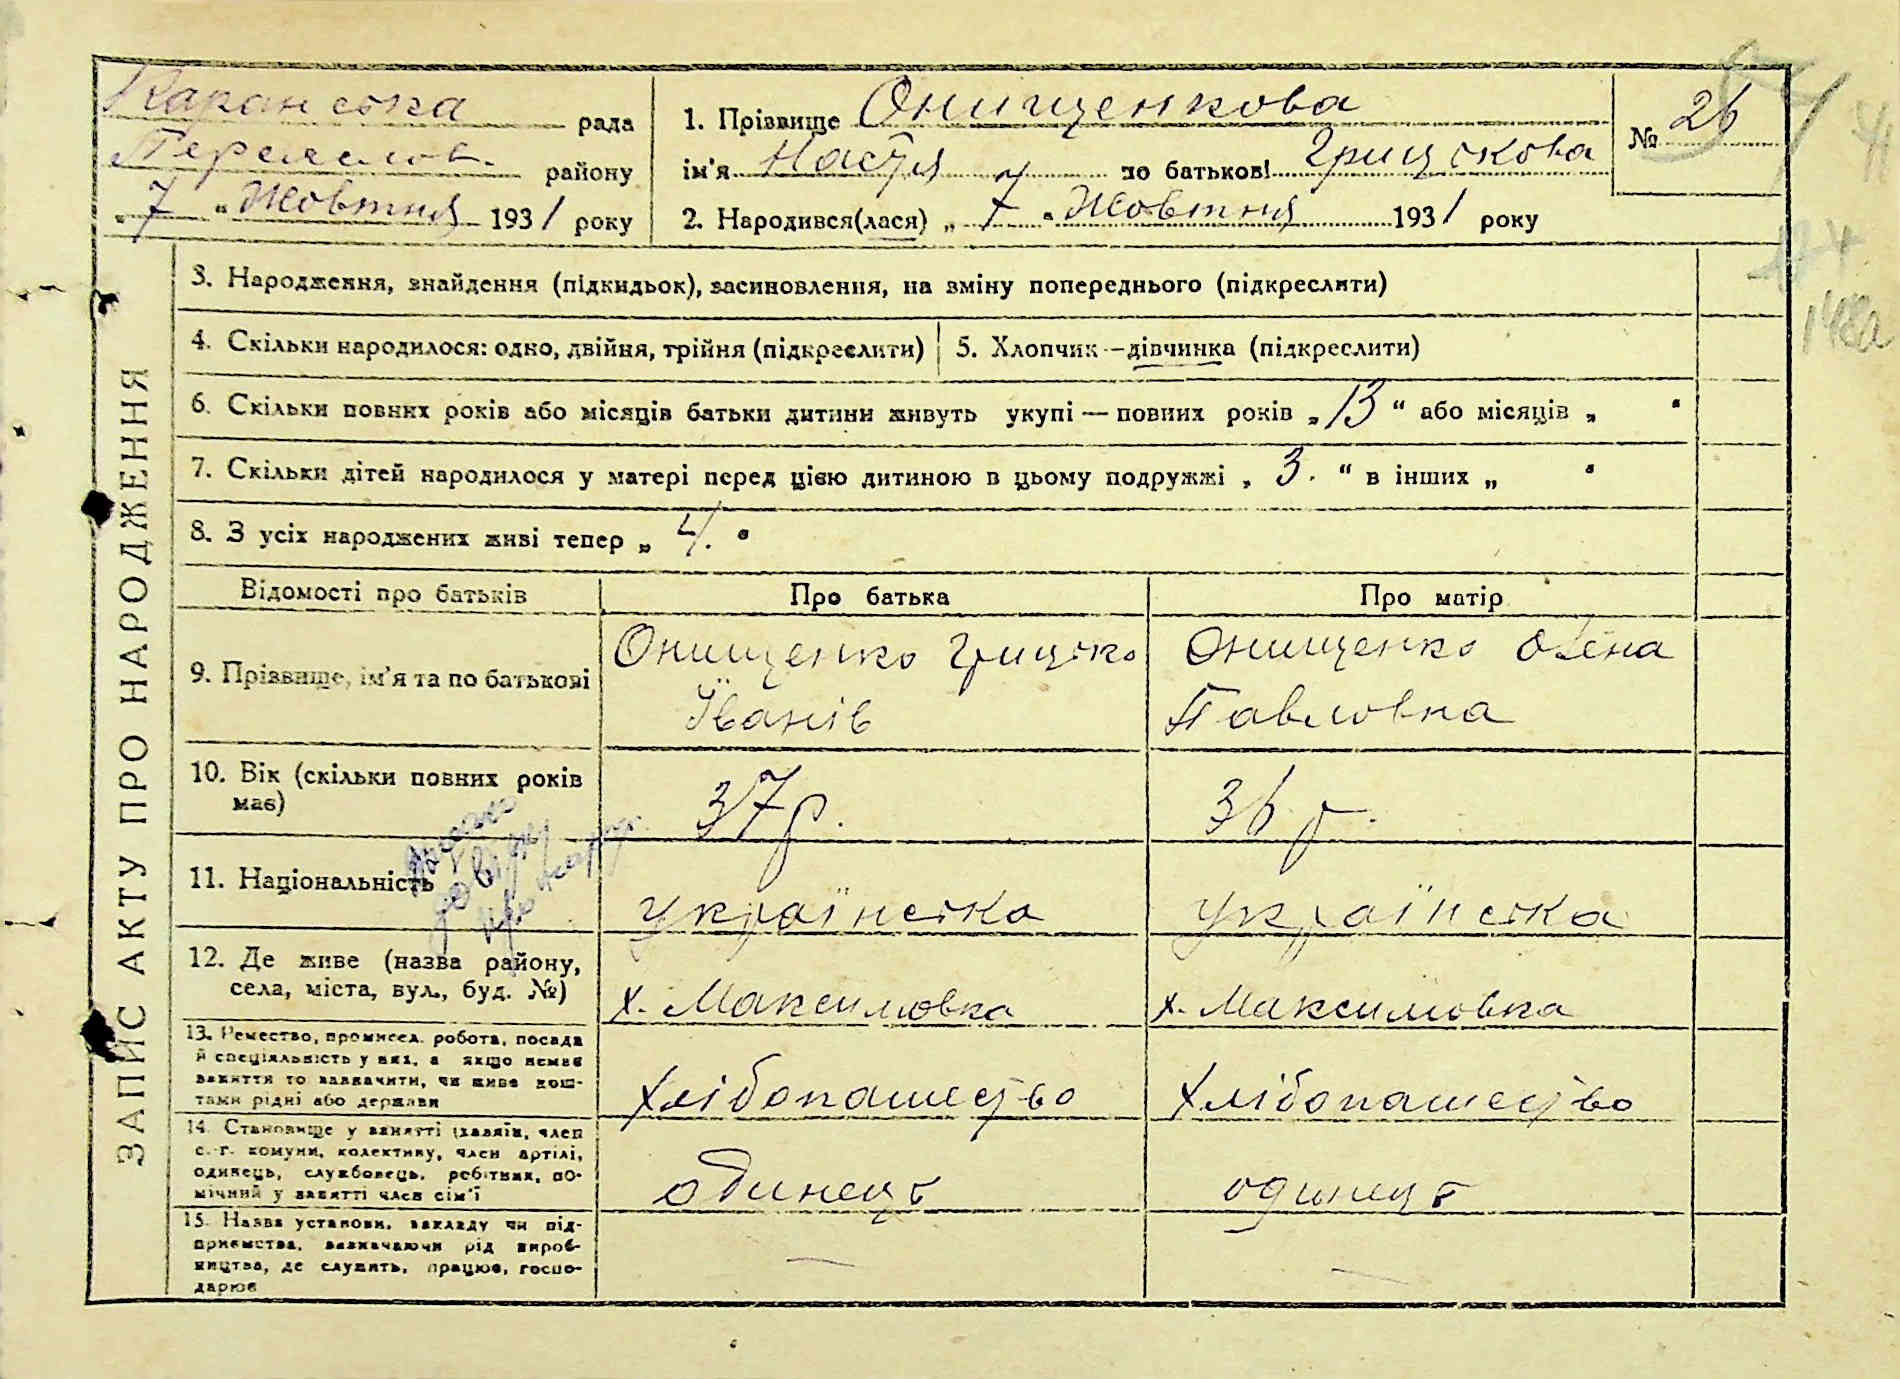 Каранська рада
Переяслов. району
„7“ Жовтня 1931 року
1. Прізвище Онищенкова
ім'я Настя по батькові Грицькова
2. Народився(лася) „7“ Жовтня 1931 року
№ 26
41
148а
ЗАПИС АКТУ ПРО НАРОДЖЕННЯ
3. Народження, знайдення (підкидьок), засиновлення, на зміну попереднього (підкреслити)
4. Скільки народилося: одно, двійня, трійня (підкреслити)
5. Хлопчик—дівчинка (підкреслити)
6. Скільки повних років або місяців батьки дитини живуть укупі — повних років „13“ або місяців „ “
7. Скільки дітей народилося у матері перед цією дитиною в цьому подружжі „3.“ в інших „ “
8. З усіх народжених живі тепер „4.“
Відомості про батьків
Про батька
Про матір
9. Прізвище, ім'я та по батькові
Онищенко Грицько
Іванів
Онищенко Олена
Павловна
10. Вік (скільки повних років
має)
37 р.
36 р.
11. Національність
українська
українська
12. Де живе (назва району,
села, міста, вул., буд. №)
х. Максимовка
х. Максимовка
13. Ремество, промисел. робота, посада
й спеціяльність у них, а якщо немає
заняття то зазначити, чи живе кош-
тами рідні або держави
Хлібопашество
Хлібопашество
14. Становище у занятті (хазяїн, член
с.-г. комуни, колективу, член артілі,
одинець, службовець, робітник, по-
мічний у занятті член сім'ї
одинець
одинець
15. Назва установи, закладу чи під-
приємства, зазначаючи рід вироб-
ництва, де служить, працює, госпо-
дарює
—
—